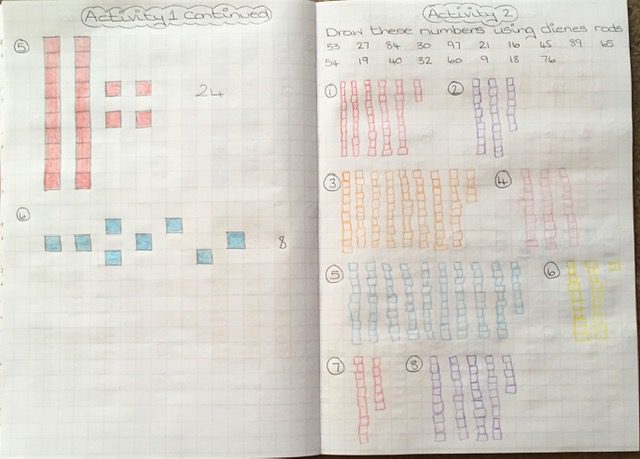 Activity 1 continued
5
24
6
8
Activity 2
Draw these numbers using dienes rods
53 27 84 30 97 21 16 45 89 65
54 19 40 32 60 9 18 76
1 2
3 4
5 6
7 8